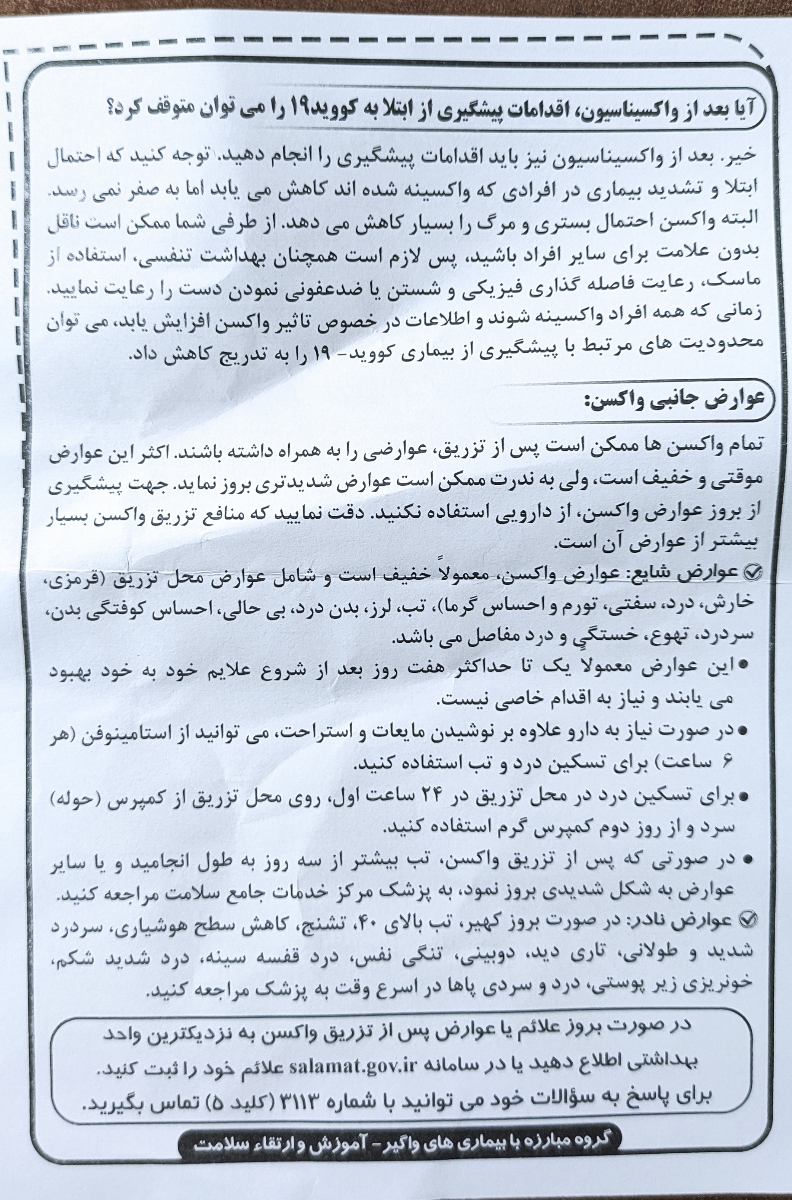 آیا بعد از واکسیناسیون، اقدامات پیشگیری از ابتلا به کووید۱۹ را می توان متوقف کرد؟
خیر. بعد از واکسیناسیون نیز باید اقدامات پیشگیری را انجام دهید. توجه کنید که احتمال
ابتلا و تشدید بیماری در افرادی که واکسینه شده اند کاهش می یابد اما به صفر نمی رسد.
البته واکسن احتمال بستری و مرگ را بسیار کاهش می دهد. از طرفی شما ممکن است ناقل
بدون علامت برای سایر افراد باشید، پس لازم است همچنان بهداشت تنفسی، استفاده از
ماسک، رعایت فاصله گذاری فیزیکی و شستن یا ضدعفونی نمودن دست را رعایت نمایید.
زمانی که همه افراد واکسینه شوند و اطلاعات در خصوص تاثیر واکسن افزایش یابد، می توان
محدودیت های مرتبط با پیشگیری از بیماری کووید- ۱۹ را به تدریج کاهش داد.
عوارض جانبی واکسن:
تمام واکسن ها ممکن است پس از تزریق، عوارضی را به همراه داشته باشند. اکثر این عوارض
موقتی و خفیف است، ولی به ندرت ممکن است عوارض شدیدتری بروز نماید. جهت پیشگیری
از بروز عوارض واکسن، از دارویی استفاده نکنید. دقت نمایید که منافع تزریق واکسن بسیار
بیشتر از عوارض آن است.
عوارض شایع: عوارض واکسن، معمولاً خفیف است و شامل عوارض محل تزریق (قرمزی،
خارش، درد، سفتی، تورم و احساس گرما)، تب، لرز، بدن درد، بی حالی، احساس کوفتگی بدن،
سردرد، تهوع، خستگی و درد مفاصل می باشد.
•این عوارض معمولاً یک تا حداکثر هفت روز بعد از شروع علایم خود به خود بهبود
می یابند و نیاز به اقدام خاصی نیست.
•در صورت نیاز به دارو علاوه بر نوشیدن مایعات و استراحت، می توانید از استامینوفن (هر
۶ ساعت) برای تسکین درد و تب استفاده کنید.
•برای تسکین درد در محل تزریق در ۲۴ ساعت اول، روی محل تزریق از کمپرس (حوله)
سرد و از روز دوم کمپرس گرم استفاده کنید.
• در صورتی که پس از تزریق واکسن، تب بیشتر از سه روز به طول انجامید و یا سایر
عوارض به شکل شدیدی بروز نمود، به پزشک مرکز خدمات جامع سلامت مراجعه کنید.
عوارض نادر: در صورت بروز کهیر، تب بالای ۴۰، تشنج، کاهش سطح هوشیاری، سردرد
شدید و طولانی، تاری دید، دوبینی، تنگی نفس، درد قفسه سینه، درد شدید شکم،
خونریزی زیر پوستی، درد و سردی پاها در اسرع وقت به پزشک مراجعه کنید.
در صورت بروز علائم یا عوارض پس از تزریق واکسن به نزدیکترین واحد
بهداشتی اطلاع دهید یا در سامانه salamat.gov.ir علائم خود را ثبت کنید.
برای پاسخ به سؤالات خود می توانید با شماره ۳۱۱۳ (کلید ۵) تماس بگیرید.
گروه مبارزه با بیماری های واگیر- آموزش و ارتقاء سلامت